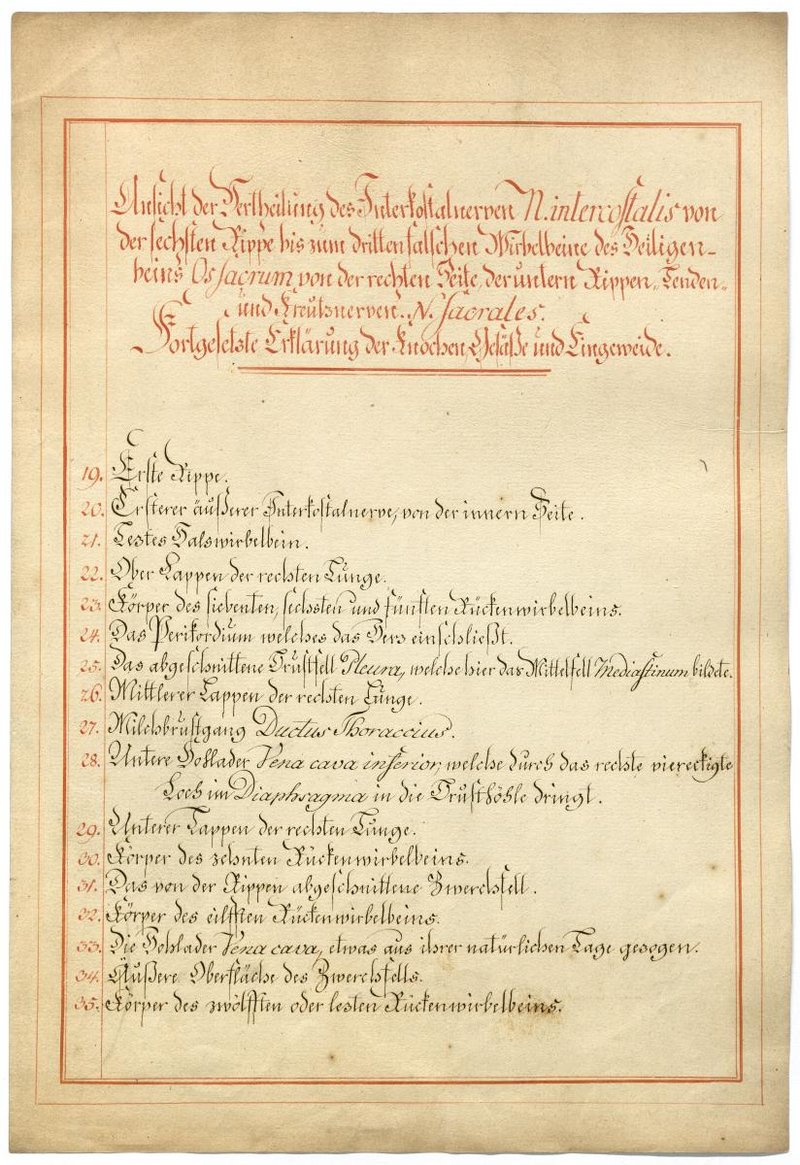 Ansicht der Vertheilung des Interkostalnerven N. intercostalis von
der sechsten Rippe bis zum dritten falschen Wirbelbeine des Heiligen-
beins Os sacrum, von der rechten Seite, der untern Rippen, Lenden-
und Kreutznerven. N. sacrales.
Fortgesetzte Erklärung der Knochen, Gefäße und Eingeweide.
19. Erste Rippe.
20. Ersterer äußerer Interkostalnerve, von der innern Seite.
21. Leztes Halswirbelbein.
22. Ober Lappen der rechten Lunge.
23. Körper des siebenten, sechsten und fünften Rückenwirbelbeins.
24. Das Perikordium welches das Herz einschließt.
25. Das abgeschnittene Brustfell Pleura, welche hier das Mittelfell Mediastinum bildete.
26. Mittlerer Lappen der rechten Lunge.
27. Milchbrustgang Ductus Thoraccius.
28. Untere Hohlader Vena cava inferior, welche durch das rechte viereckigte
Loch im Diaphragma in die Brusthöhle dringt.
29. Unterer Lappen der rechten Lunge.
30. Körper des zehnten Rückenwirbelbeins.
31. Das von der Rippen abgeschnittene Zwerchfell.
32. Körper des eilfften Rückenwirbelbeins.
33. Die Hohlader Vena cava, etwas aus ihrer natürlichen Lage gezogen.
34. Äußere Oberfläche des Zwerchfells.
35. Körper des zwölfften oder lezten Rückenwirbelbeins.